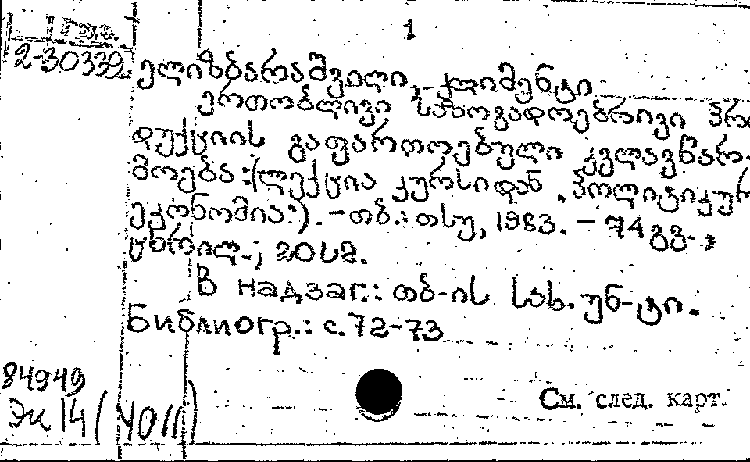 1
2-30332
ელიზბარაშვილი, კლიმენტი
ერთობლივი საზოგადოებრივი პრო
დუქციის გაფართოებული კვლავწარ-
მოება: (ლექცია კურსიდან „პოლიტიკურ
ეკონომია“). – თბ.: თსუ, 1983. – 74 გგ.;
ცხრილ.; 20 სმ.
В надзаг.: თბ-ის სახ. უნ-ტი.
Библиогр.: с. 72-73
84949
Эк 14 (4011)
См. след. карт.